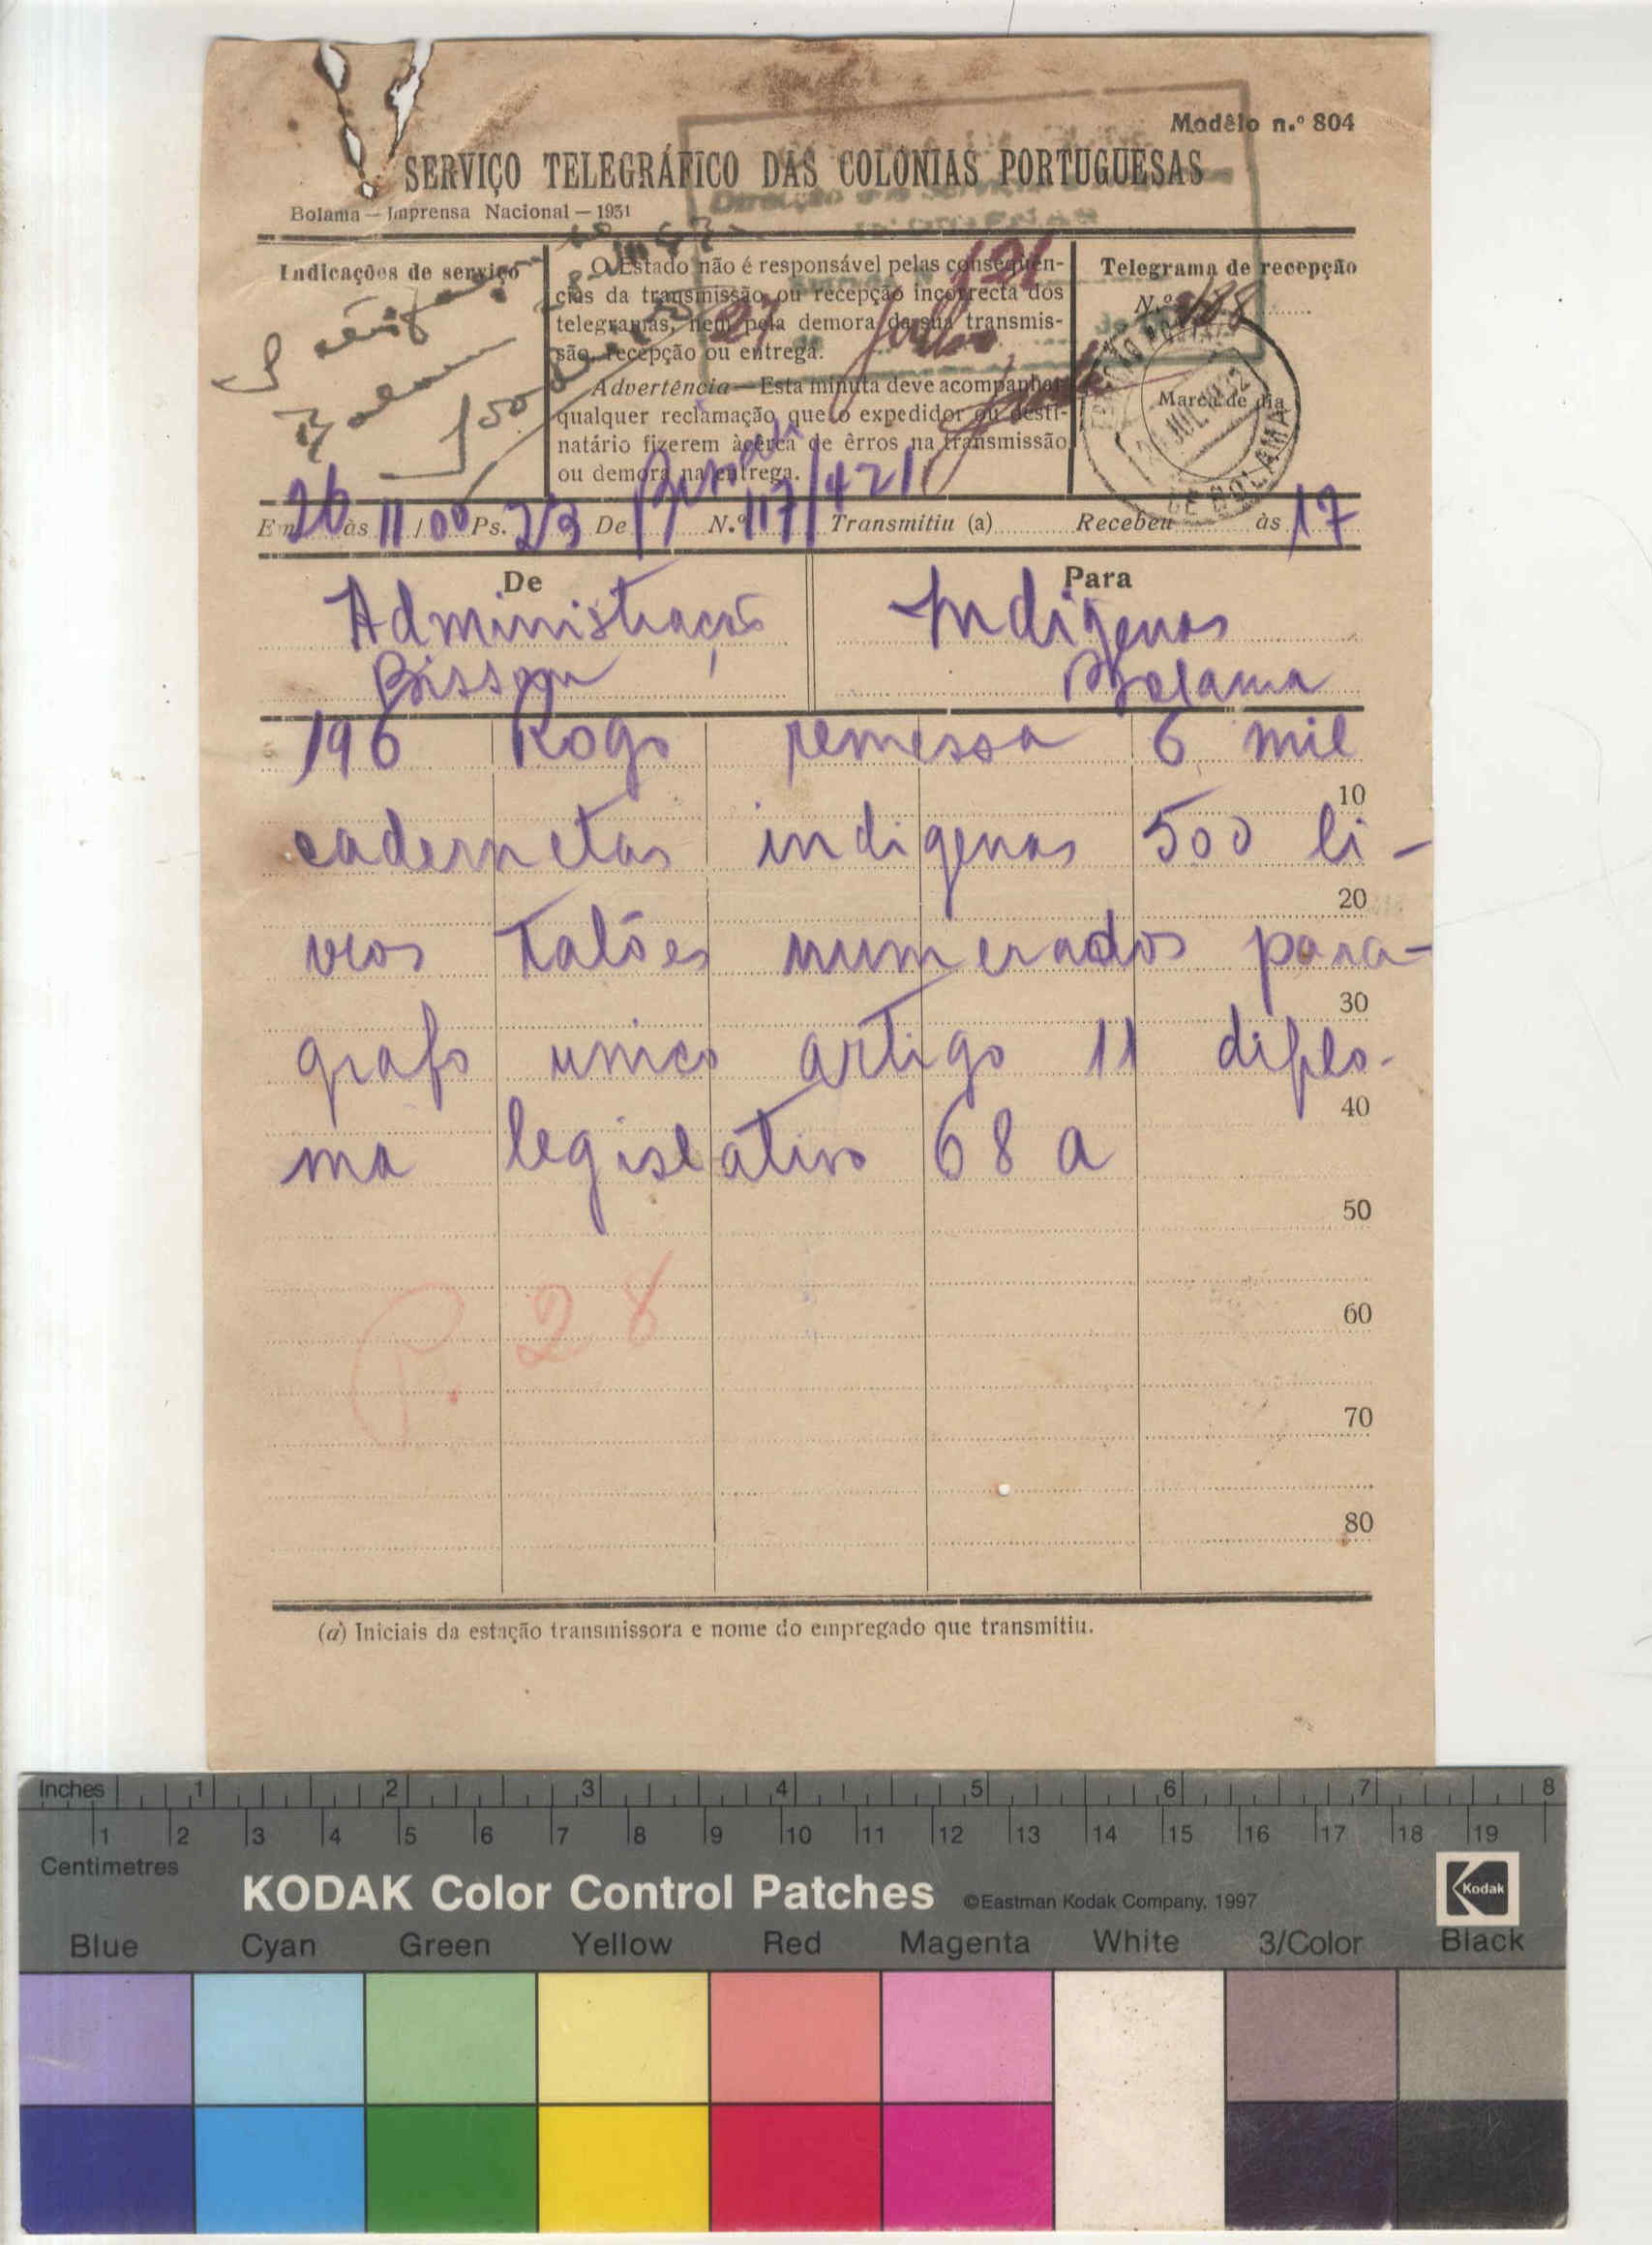 Modêlo n.º 804
SERVIÇO TELEGRÁFICO DAS COLÓNIAS PORTUGUESAS
Bolama — Imprensa Nacional — 1931
Indicações de serviço
O Estado não é responsável pelas conseqüên-
cias da transmissão ou recepção incorrecta dos
telegramas, nem pela demora da sua transmis-
são, recepção ou entrega.
Advertência — Esta minuta deve acompanhar
qualquer reclamação que o expedidor ou desti-
natário fizerem àcêrca de êrros na transmissão
ou demora na entrega.
121
27 Julho
Telegrama de recepção
N.º 188
Marca de dia
JUL 32
DE BOLAMA
Em 26 às 11/00 Ps. 23 De Bissau N.º 117/421 Transmitiu (a) Recebeu às 17
De
Administração
Bissau
Para
Indigenas
Bolama
196 Rogo remessa 6 mil
10
cadernetas indigenas 500 li-
20
vros talões numerados para-
30
grafo unico artigo 11 diplo-
40
ma legislativo 68 a
50
P. 28
60
70
80
(a) Iniciais da estação transmissora e nome do empregado que transmitiu.
Inches 1 2 3 4 5 6 7 8
1 2 3 4 5 6 7 8 9 10 11 12 13 14 15 16 17 18 19
Centimetres
KODAK Color Control Patches ©Eastman Kodak Company, 1997 Kodak
Blue Cyan Green Yellow Red Magenta White 3/Color Black